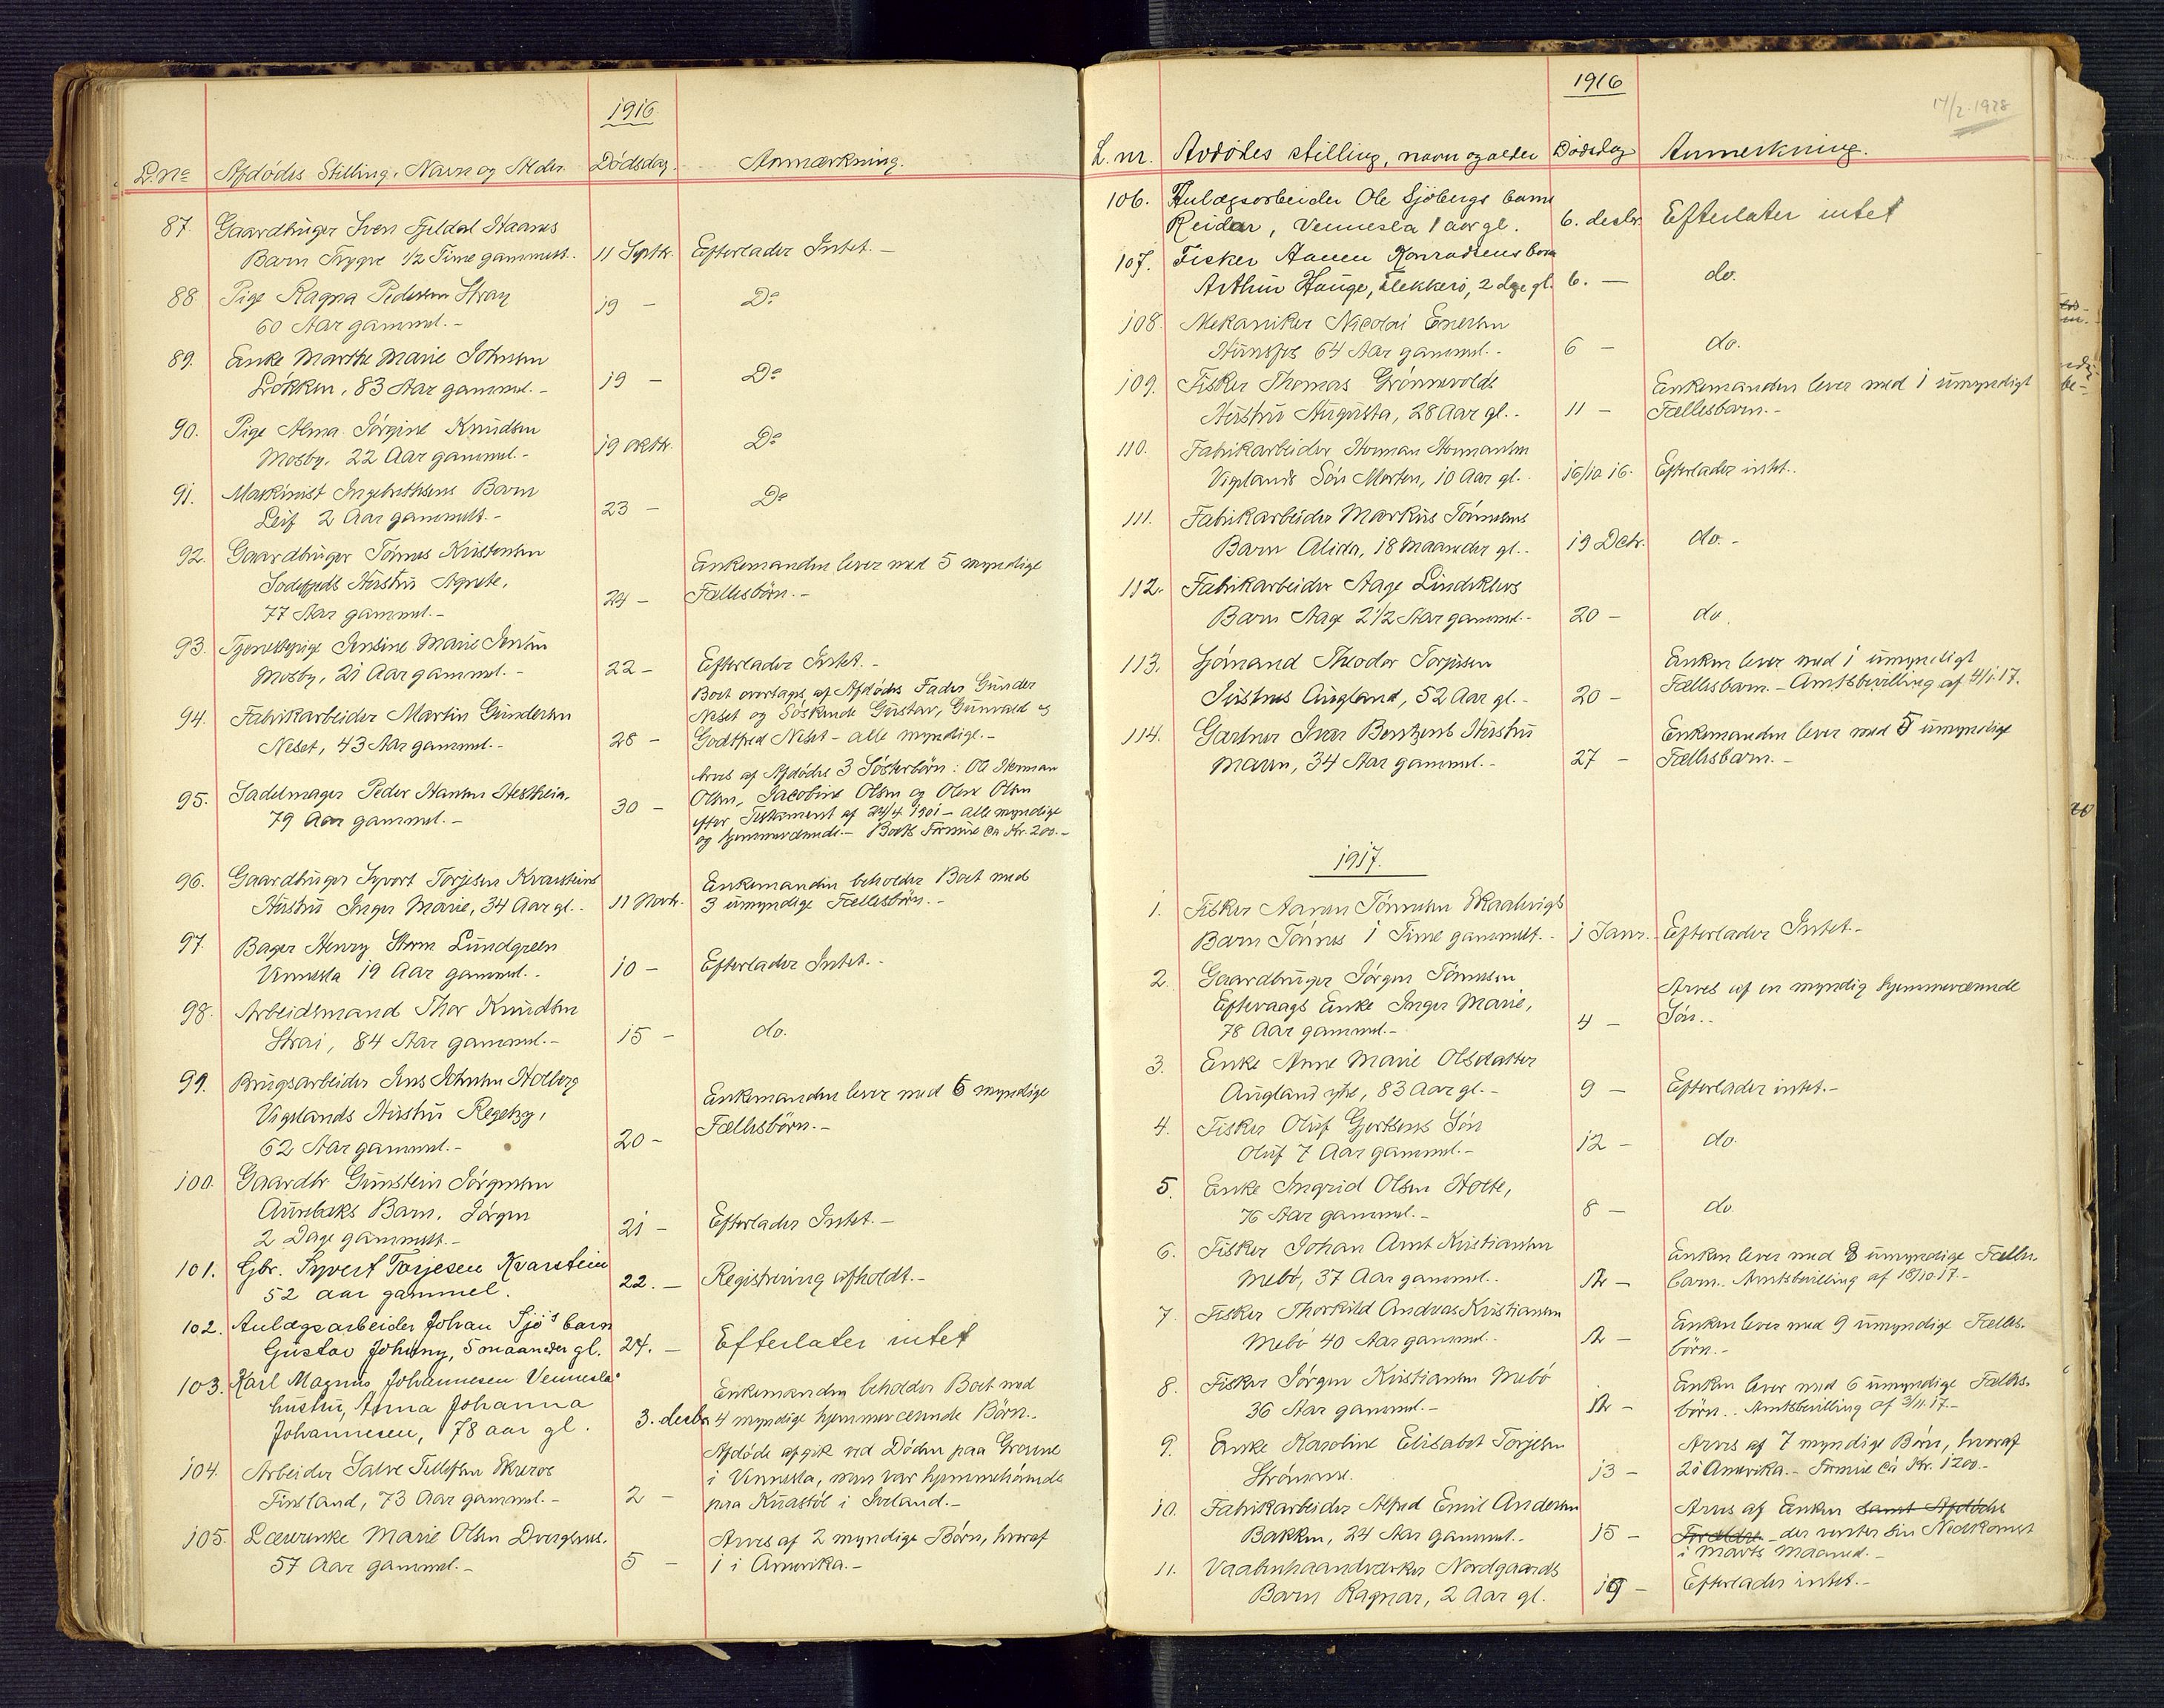 1916.
L. No Afdødes Stilling, Navn og Alder. Dødsdag. Anmærkning.
87. Gaardbruger Sven Fjeldal Haanes
Barn Trygve 1/2 Time gammelt. 11 Septbr. Efterlader Intet.-
88 Pige Ragna Pedersen Stray
60 Aar gammel.- 19 - Do
89. Enke Marthe Marie Johnsen
Løkken, 83 Aar gammel.- 19 - Do
90. Pige Alma Jørgine Knudsen
Mosby, 22 Aar gammel.- 19 Oktbr. Do
91. Maskinist Ingebrethsens Barn
Leif 2 Aar gammelt.- 23 - Do
92. Gaardbruger Tønnes Kristensen
Sodefjeds Hustru Agnete,
77 Aar gammel.- 24 -
Enkemanden lever med 5 myndige
Fællesbørn.-
93. Tjenestepige Jensine Marie Jensen
Mosby, 21 Aar gammel.- 22 - Efterlader Intet.-
94. Fabrikarbeider Martin Gundersen
Neset, 43 Aar gammel.- 28 -
Boet overtages af Afdødes Fader Gunder
Neset og Søskende Gustav, Gunvald og
Godtfred Neset - alle myndige.-
95. Sadelmager Peder Hansen Hestheia,
79 Aar gammel.- 30 -
Arves af Afdødes 3 Søsterbørn: Ole Herman
Olsen, Jacobine Olsen og Olene Olsen
efter Testament af 24/4 1901 - alle myndige
og hjemmeværende.- Boets Formue ca Kr. 200.-
96. Gaardbruger Syvert Torjesen Kvarsteins
Hustru Inger Marie, 34 Aar gl.. 11 Novbr.
Enkemanden beholder Boet med
3 umyndige Fællesbørn.-
97. Bager Henry Storm Lundgreen
Vennesla 19 Aar gammel.- 10 - Efterlader Intet.-
98. Arbeidsmand Thor Knudsen
Strai, 84 Aar gammel.- 15 - do.
99. Brugsarbeider Jens Johnsen Holberg
Vigelands Hustru Regetzy,
62 Aar gammel.- 20 -
Enkemanden lever med 6 myndige
Fællesbørn.-
100. Gaardbr. Gunstein Jørgensen
Aurebaks Barn, Jørgen
2 Dage gammelt.- 21 - Efterlader Intet.-
101. Gbr. Syvert Torjesen Kvarstein
52 aar gammel. 22. - Registrering afholdt.-
102. Anlægsarbeider Johan Sjø's barn
Gustav Johnny, 5 maaneder gl. 24. - Efterlater intet
103. Karl Magnus Johannesen Vennesla's
hustru, Anna Johanna
Johannesen, 78 aar gl. 3. desbr.
Enkemanden beholder Boet med
4 myndige hjemmeværende Børn.-
104. Arbeider Salve Tellefsen Skreros
Finsland, 73 Aar gammel.- 2 -
Afdøde afgik ved Døden paa Grovane
i Vennesla, men var hjemmehørende
paa i Iveland.-
105. Lærerenke Marie Olsen Dvergsnes.
57 Aar gammel.- 5 -
Arves af 2 myndige Børn, hvoraf
1 i Amerika.-
1916
17/2-1928
L. nr. Avdødes stilling, navn og alder Dødsdag Anmerkning.
106. Anlægsarbeider Ole Sjøbergs barn
Reidar, Vennesla 1 aar gl. 6. desbr. Efterlater intet
107. Fisker Aanen Konradsens barn
Arthur Hauge, Flekkerø, 2 dage gl. 6. - do.
108. Mekaniker Nicolai Enersen
Hunsfos 64 Aar gammel.- 6 - do.
109. Fisker Thomas Grønnevolds
Hustru Augusta, 28 Aar gl.. 11 -
Enkemanden lever med 1 umyndigt
Fællesbarn.-
110. Fabrikarbeider Herman Hermansen
Vigelands Søn Morten, 10 Aar gl.. 16/10 16. Efterlader intet..
111. Fabrikarbeider Markus Tønnesens
Barn Alida, 18 Maaneder gl.. 19 Decbr. do.-
112. Fabrikarbeider Aage Lindekleivs
Barn Aage 2 1/2 Aar gammel.- 20 - do.
113. Sjømand Theodor Torjusen
Justnes Augland, 52 Aar gl.- 20 -
Enken lever med 1 umyndigt
Fællesbarn.- Amtsbevilling af 4/1.17.
114. Gartner Ivar Bentzens Hustru
Maren, 34 Aar gammel.- 27 -
Enkemanden lever med 5 umyndige
Fællesbarn.-
1917.
1. Fisker Aanen Tønnesen Skaalevigs
Barn Tønnes 1 Time gammelt.- 1 Janr. Efterlader Intet.-
2. Gaardbruger Jørgen Tønnesen
Eftevaags Enke Inger Marie,
78 Aar gammel.- 4 -
Arves af en myndig hjemmeværende
Søn..
3. Enke Anne Marie Olsdatter
Augland ytre, 83 Aar gl.- 9 - Efterlader intet.-
4. Fisker Oluf Gjertsens Søn
Oluf 7 Aar gammel.- 12 - do.
5. Enke Ingrid Olsen Holte,
76 Aar gammel.- 8 - do.
6. Fisker Johan Arnt Kristiansen
Mebø, 37 Aar gammel.- 12 -
Enken lever med 8 umyndige Fælles-
barn.. Amtsbevilling af 18/10.17.-
7. Fisker Thorkild Andreas Kristiansen
Mebø 40 Aar gammel.- 12 -
Enken lever med 9 umyndige Fælles-
børn.-
8. Fisker Jørgen Kristiansen Mebø
36 Aar gammel.- 12 -
Enken lever med 6 umyndige Fælles-
børn.. Amtsbevilling af 3/11.17.-
9. Enke Karoline Elisabet Torjesen
Strømme. 13 -
Arves af 7 myndige Børn, hvoraf
2 i Amerika.- Formue ca Kr. 1200.-
10. Fabrikarbeider Alfred Emil Andersen
Bakken, 24 Aar gammel.- 15 -
Arves af Enken samt Afdødes
Forældre - der venter sin Nedkomst
i Marts Maaned.-
11. Vaabenhaandverker Nordgaards
Barn Ragnar, 2 Aar gl. 19 - Efterlader intet.-